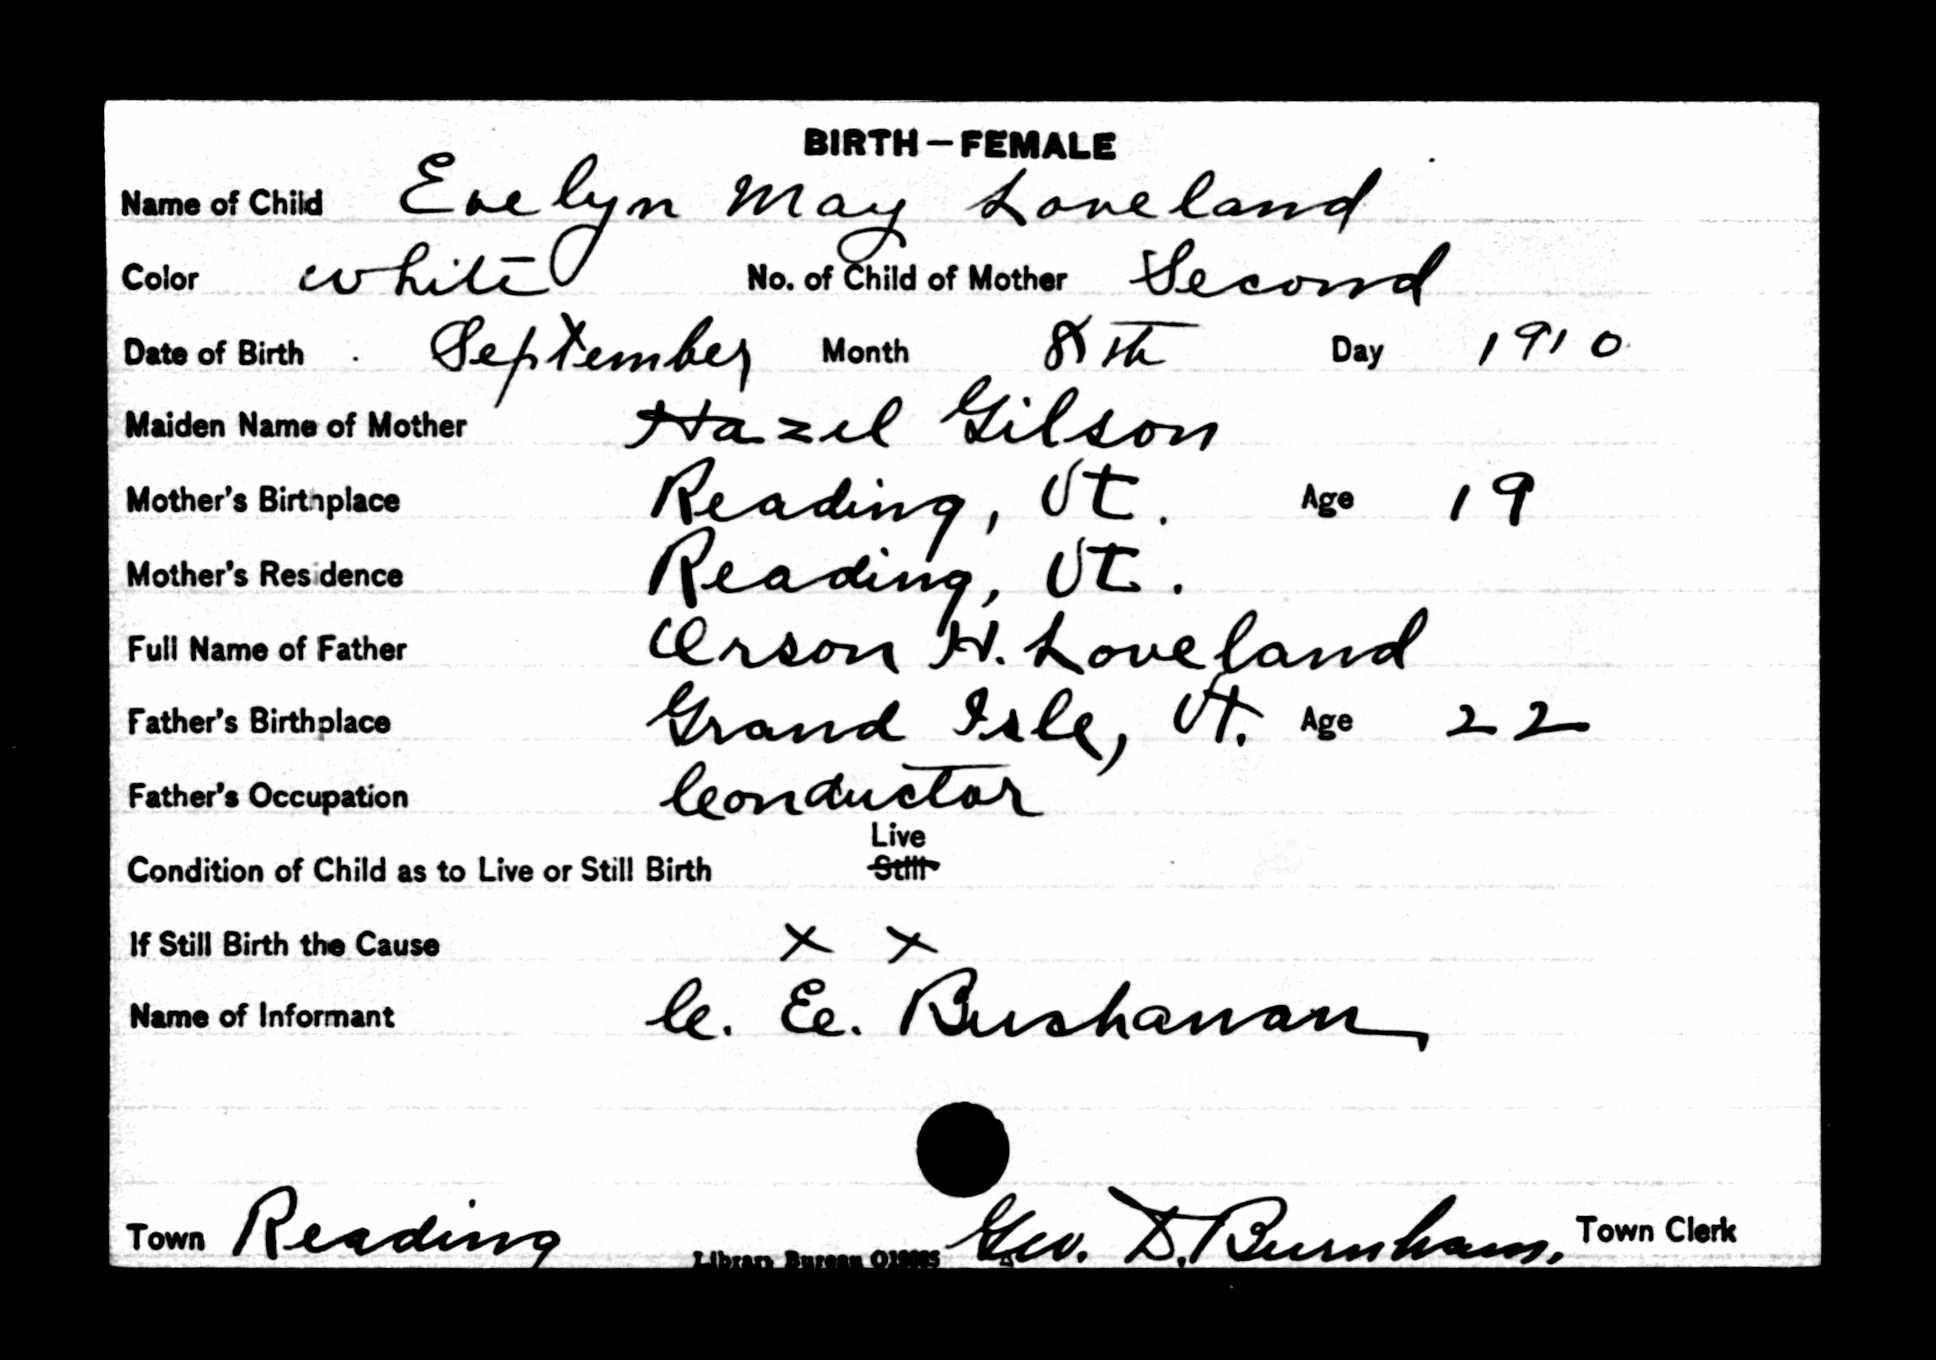 BIRTH — FEMALE
Name of Child Evelyn May Loveland
Color white No. of Child of Mother Second
Date of Birth September Month 8th Day 1910
Maiden Name of Mother Hazel Gilson
Mother's Birthplace Reading, Vt. Age 19
Mother's Residence Reading, Vt.
Full Name of Father Orson H. Loveland
Father's Birthplace Grand Isle, Vt. Age 22
Father's Occupation Conductor
Live
Condition of Child as to Live or Still Birth Still
If Still Birth the Cause x x
Name of Informant C. E. Bushanan
Town Reading Geo. D. Burnham, Town Clerk
Library Bureau